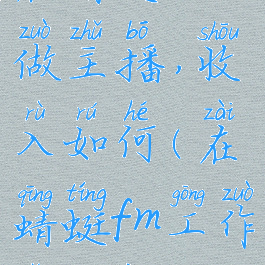 zuò zhǔ bō shōu
做主播,收
rù rú hé zài
入如何(在
qīng tíng gōng zuò
蜻蜓fm工作